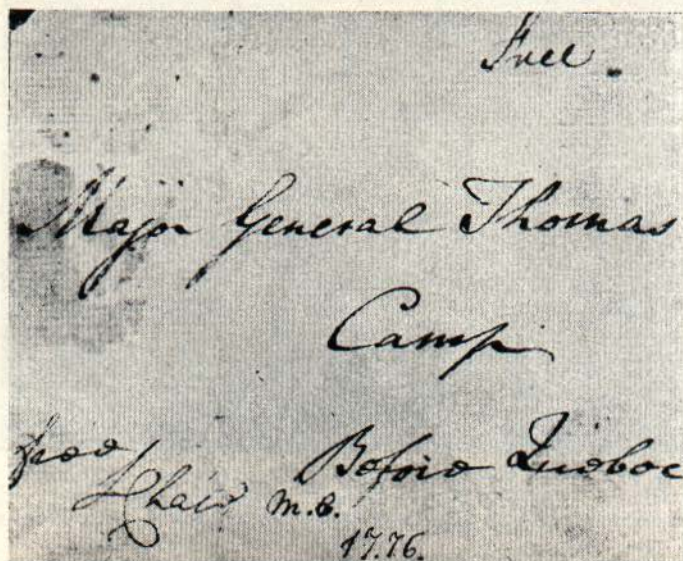 Free.
Major General Thomas
Camp
free Before Quebec
Chase M.C.
1776.